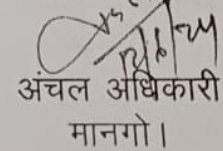 अंचल अधिकारी
मानगो।